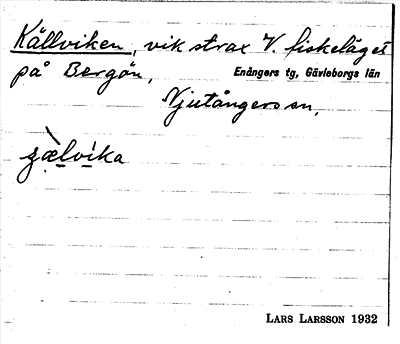 Källviken, vik strax V. fiskeläget
på Bergön, Enångers tg, Gävleborgs län
Njutångers sn,
jælvika
LARS LARSSON 1932